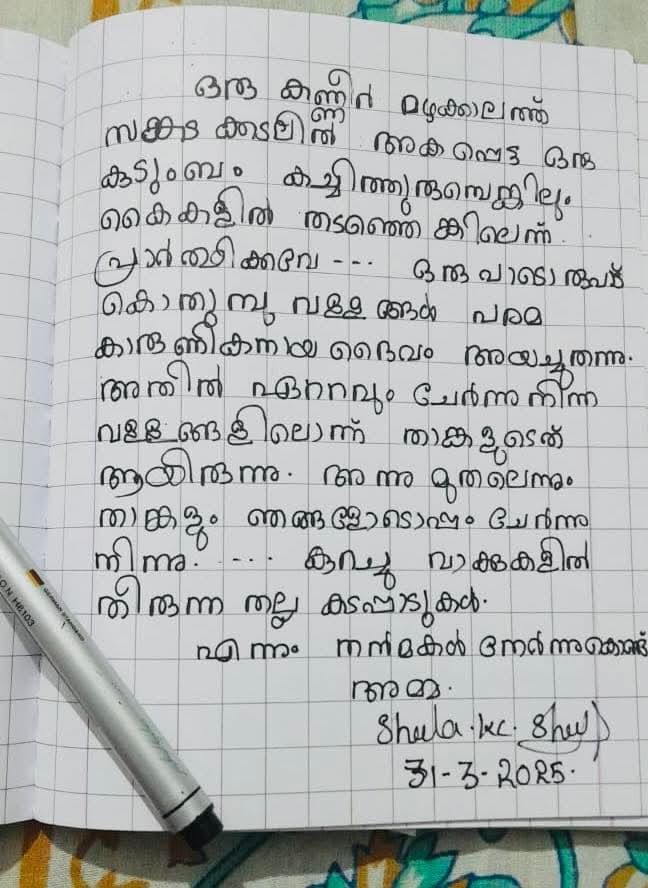 ഒരു കണ്ണീർ മഴക്കാലത്ത്
സങ്കട കടലിൽ അകപ്പെട്ട ഒരു
കുടുംബം കച്ചിത്തുരുമ്പെങ്കിലും
കൈകളിൽ തടഞ്ഞെങ്കിലെന്ന്
പ്രാർത്ഥിക്കവേ --- ഒരുപാടൊരുപാട്
കൊതുമ്പു വള്ളങ്ങൾ പരമ
കാരുണികനായ ദൈവം അയച്ചുതന്നു.
അതിൽ ഏററവും ചേർന്നുനിന്ന
വള്ളങ്ങളിലൊന്ന് താങ്കളുടെത്
ആയിരുന്നു. അന്നു മുതലെന്നും
താങ്കളും ഞങ്ങളോടൊപ്പം ചേർന്നു
നിന്നു. --- കുറച്ചു വാക്കുകളിൽ
തീരുന്ന തല്ല കടപ്പാടുകൾ.
എന്നും നന്മകൾ നേർന്നുകൊണ്ട്
അമ്മ.
Sheela.kc.
31-3-2025.
GERMAN
ON H6103